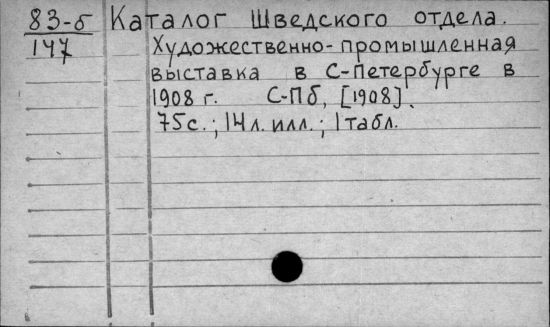 83-б Каталог Шведского отдела.
147 Художественно-промышленная
выставка в С-Петербурге в
1908 г. С-Пб, [1908].
75с.; 14л. илл.; 1табл.